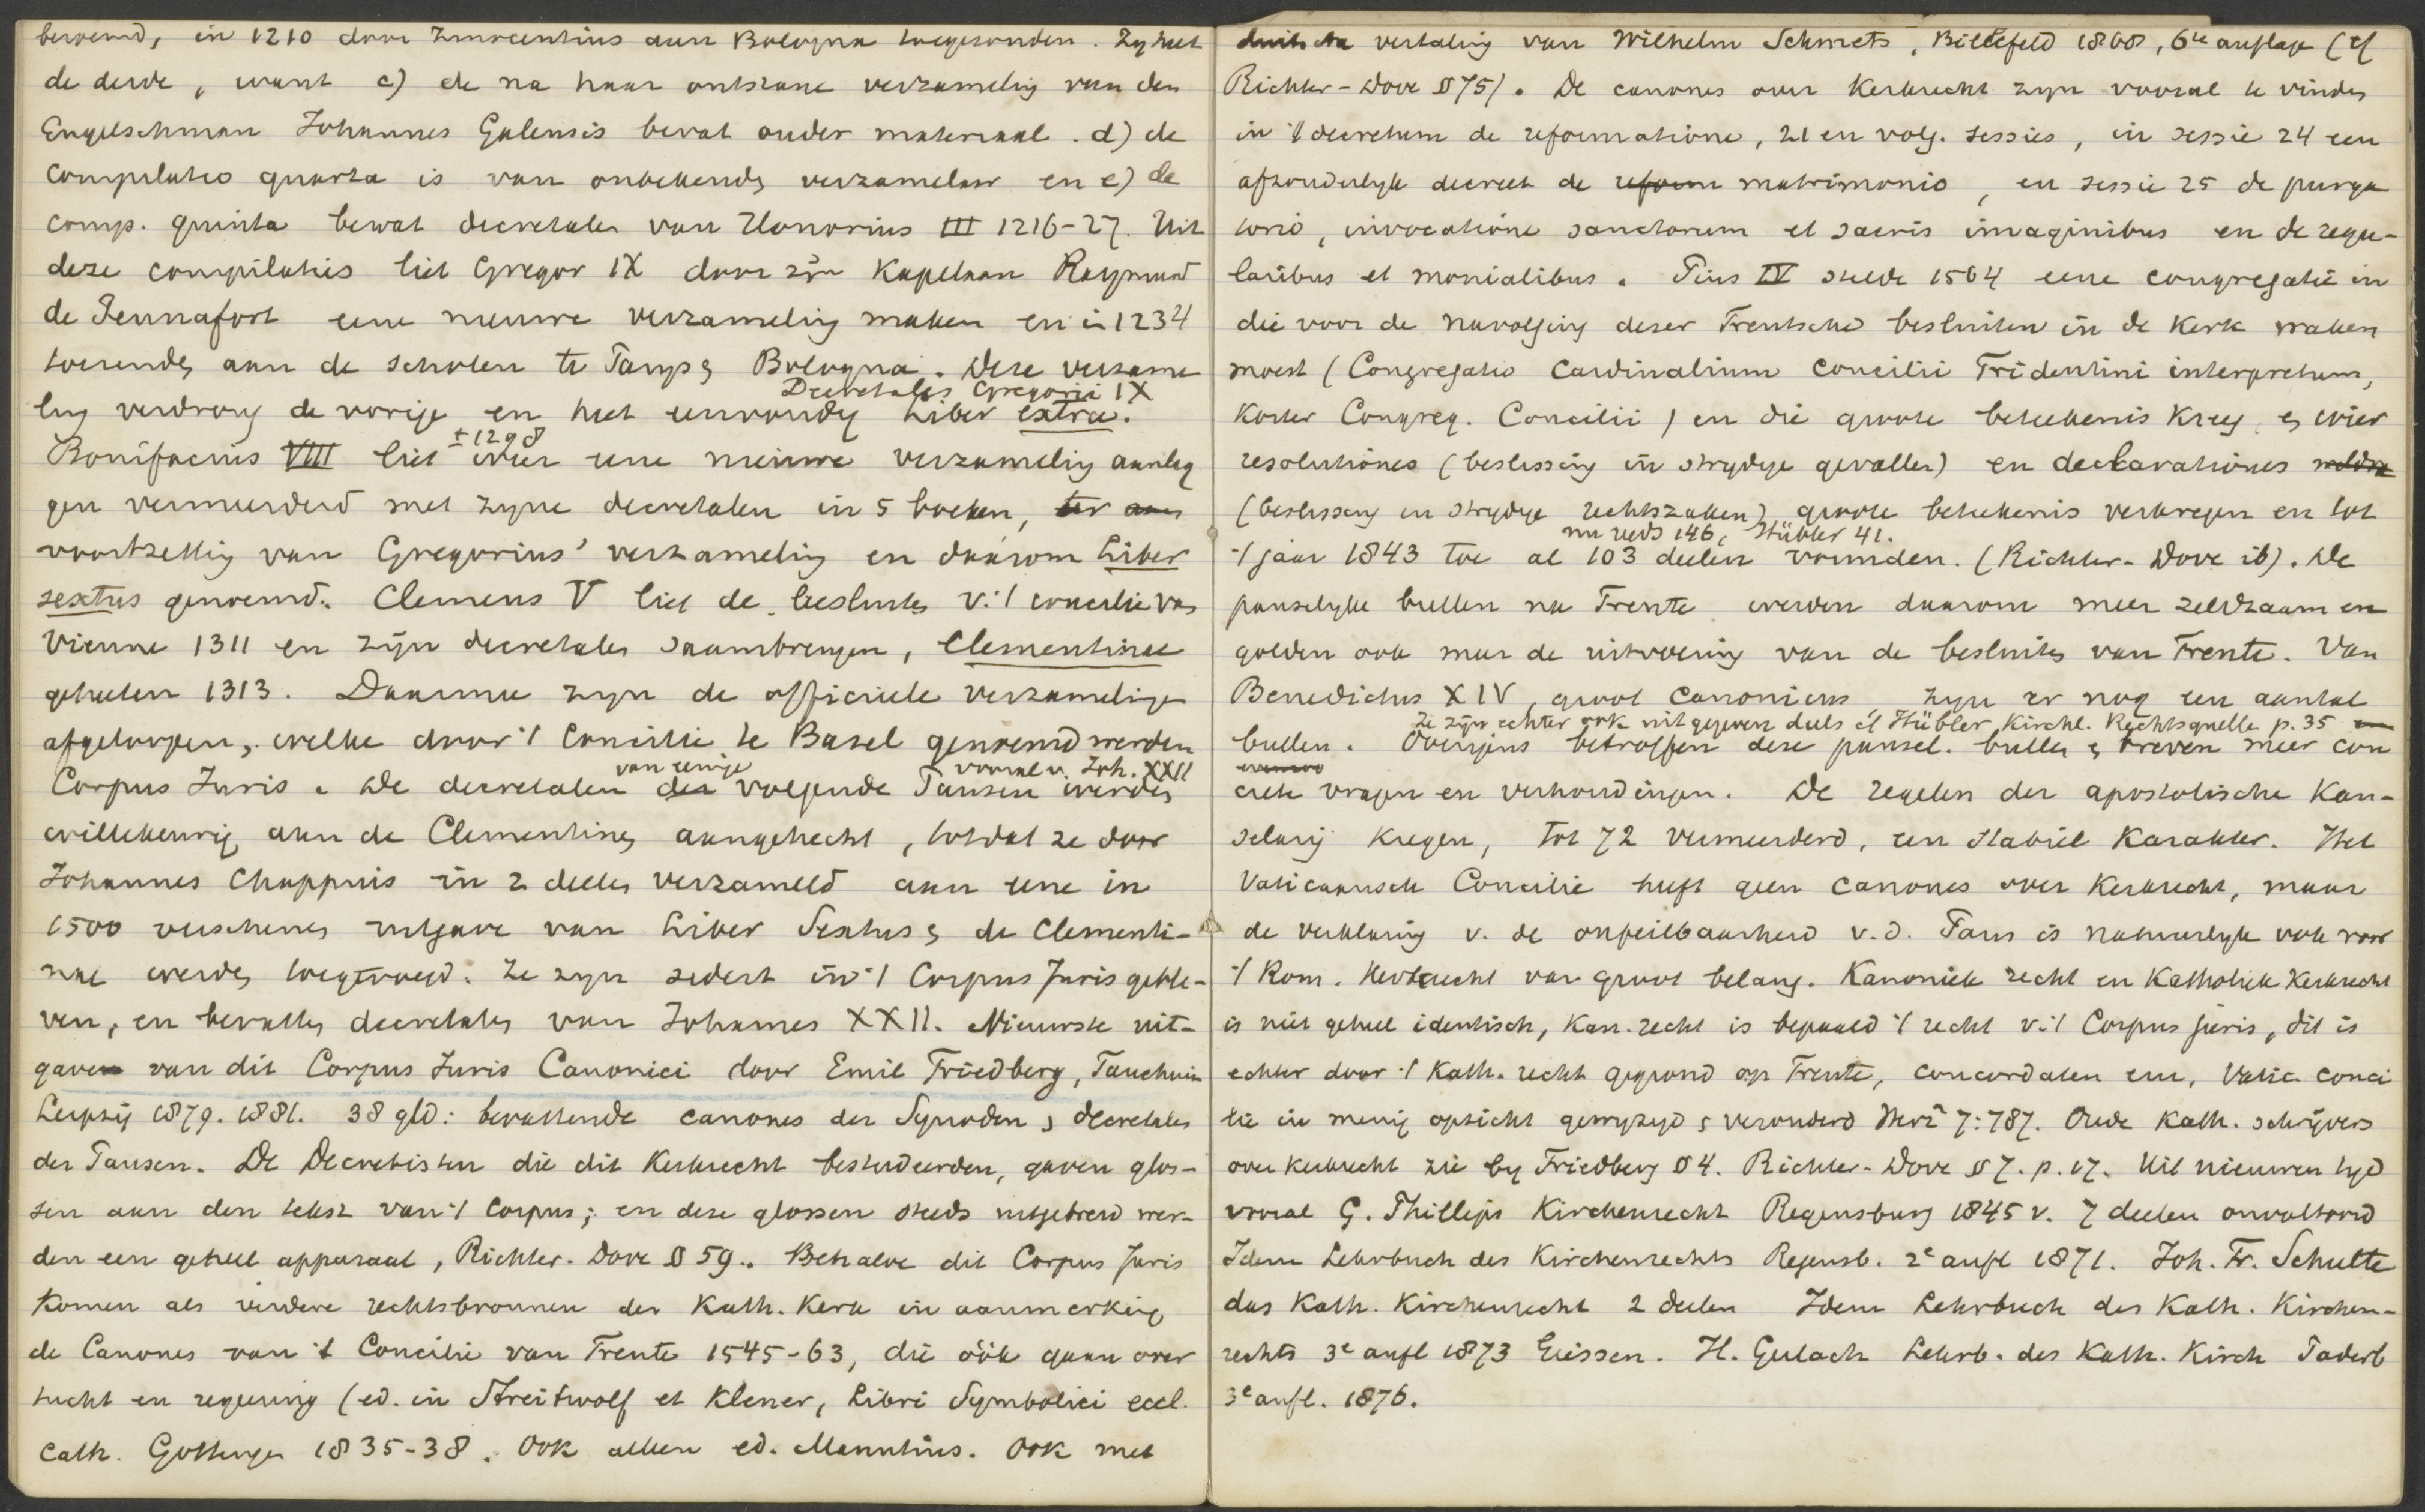 beroemd, in 1210 door Innocentius aan Bologna toegezonden. Zy heet
de derde, want c) de na haar ontstane verzameling van den
Engelschman Johannes Galensis bevat ouder materiaal. d) de
compilatio quarta is van onbekende verzamelaar en e) de
comp. quinta bevat decretales van Honorius III 1216-27. Uit
deze compilaties liet Gregor IX door zijn Kapelaan Raymund
de Pennafort eene nieuwe verzameling maken en in 1234
toezenden aan de scholen te Parys & Bologna. Deze verzame
Decretales Gregorii IX
ling verdrong de vorige en heet eenvoudig Liber extra.
± 1298
Bonifacius VIII liet weer eene nieuwe verzameling aanleg
gen vermeerderd met zyne decretalen in 5 boeken, ter
voortzetting van Gregorius' verzameling en daarom Liber
sextus genoemd. Clemens V liet de besluiten v. 't concilie van
Vienne 1311 en zijn decretales saambrengen, Clementinae
geheeten 1313. Daarmee zyn de officiele verzamelingen
afgeloopen, welke door 't Concilie te Basel genoemd werden
van eenige vooral v. Joh. XXII
Corpus Juris. De decretalen der volgende Pausen werden
willekeurig aan de Clementinen aangehecht, totdat ze door
Johannes Chappuis in 2 deelen verzameld aan eene in
1500 verschenen uitgave van Liber Sextus & de Clementi-
nae werden toegevoegd. Ze zyn sedert in 't Corpus Juris geble-
ven, en bevatten decretales van Johannes XXII. Nieuwste uit-
gaven van dit Corpus Juris Canonici door Emil Friedberg, Tauchnitz
Leipzig 1879. 1881. 38 gld: bevattende canones der Synoden & decretales
der Pausen. De Decretisten die dit Kerkrecht bestudeerden, gaven glos-
sen aan den tekst van 't Corpus; en deze glossen steeds uitgebreid wer-
den een geheel apparaat, Richter-Dove § 59. Behalve dit Corpus Juris
komen als verdere rechtsbronnen der Kath. Kerk in aanmerking
de Canones van 't Concilie van Trente 1545-63, die óók gaan over
tucht en regeering (ed. in Streitwolf et Klener, Libri Symbolici eccl.
cath. Gottingen 1835-38. Ook alleen ed. Manutius. Ook met
duitsche vertaling van Wilhelm Schmets, Bielefeld 1868, 6te auflage (cf
Richter-Dove § 75). De canones over Kerkrecht zyn vooral te vinden
in 't decretum de reformatione, 21 en volg. sessies, in sessie 24 een
afzonderlyk decreet de reform matrimonio, en sessie 25 de purga
torio, invocatione sanctorum et sacris imaginibus en de regu-
laribus et monialibus. Pius IV stelde 1564 eene congregatie in
die voor de navolging dezer Trentsche besluiten in de Kerk waken
moest (Congregatio Cardinalium Concilii Tridentini interpretum,
korter Congreg. Concilii) en die groote beteekenis kreeg, & wier
resolutiones (beslissing in strydige gevallen) en declarationes
(beslissing in strydige rechtszaken) groote beteekenis verkregen en tot
nu reeds 146, Hübler 41.
't jaar 1843 toe al 103 deelen vormden. (Richter-Dove ib). De
pauselyke bullen na Trente werden daarom meer zeldzaam en
golden ook maar de uitvoering van de besluiten van Trente. Van
Benedictus XIV, groot canonicus, zyn er nog een aantal
Ze zijn echter ook uitgegeven deels cf Hübler, Kirchl. Rechtsquelle p. 35
bullen. Overigens betroffen deze pausel. bullen & breven meer con
crete vragen en verhoudingen. De regelen der apostolische Kan-
selarij kregen, tot 72 vermeerderd, een stabiel karakter. Het
Vaticaansch Concilie heeft geen canones over Kerkrecht, maar
de verklaring v. de onfeilbaarheid v. d. Paus is natuurlyk ook voor
't Rom. Kerkrecht van groot belang. Kanoniek recht en Katholiek Kerkrecht
is niet geheel identisch, Kan. recht is bepaald 't recht v. 't Corpus juris, dit is
echter door 't Kath. recht gegrond op Trente, concordaten enz, Vatic. conci
lie in menig opzicht gewyzigd & veranderd Herz² 7:787. Oude Kath. schrijvers
over kerkrecht zie by Friedberg § 4. Richter-Dove § 7. p. 17. Uit nieuwen tyd
vooral G. Phillips Kirchenrecht Regensburg 1845 v. 7 deelen onvoltooid
Idem Lehrbuch des Kirchenrechts Regensb. 2e aufl 1871. Joh. Fr. Schulte
das Kath. Kirchenrecht 2 deelen Idem Lehrbuch des Kath. Kirchen-
rechts 3e aufl 1873 Giessen. H. Gerlach Lehrb. des Kath. Kirch Paderb
3e aufl. 1876.